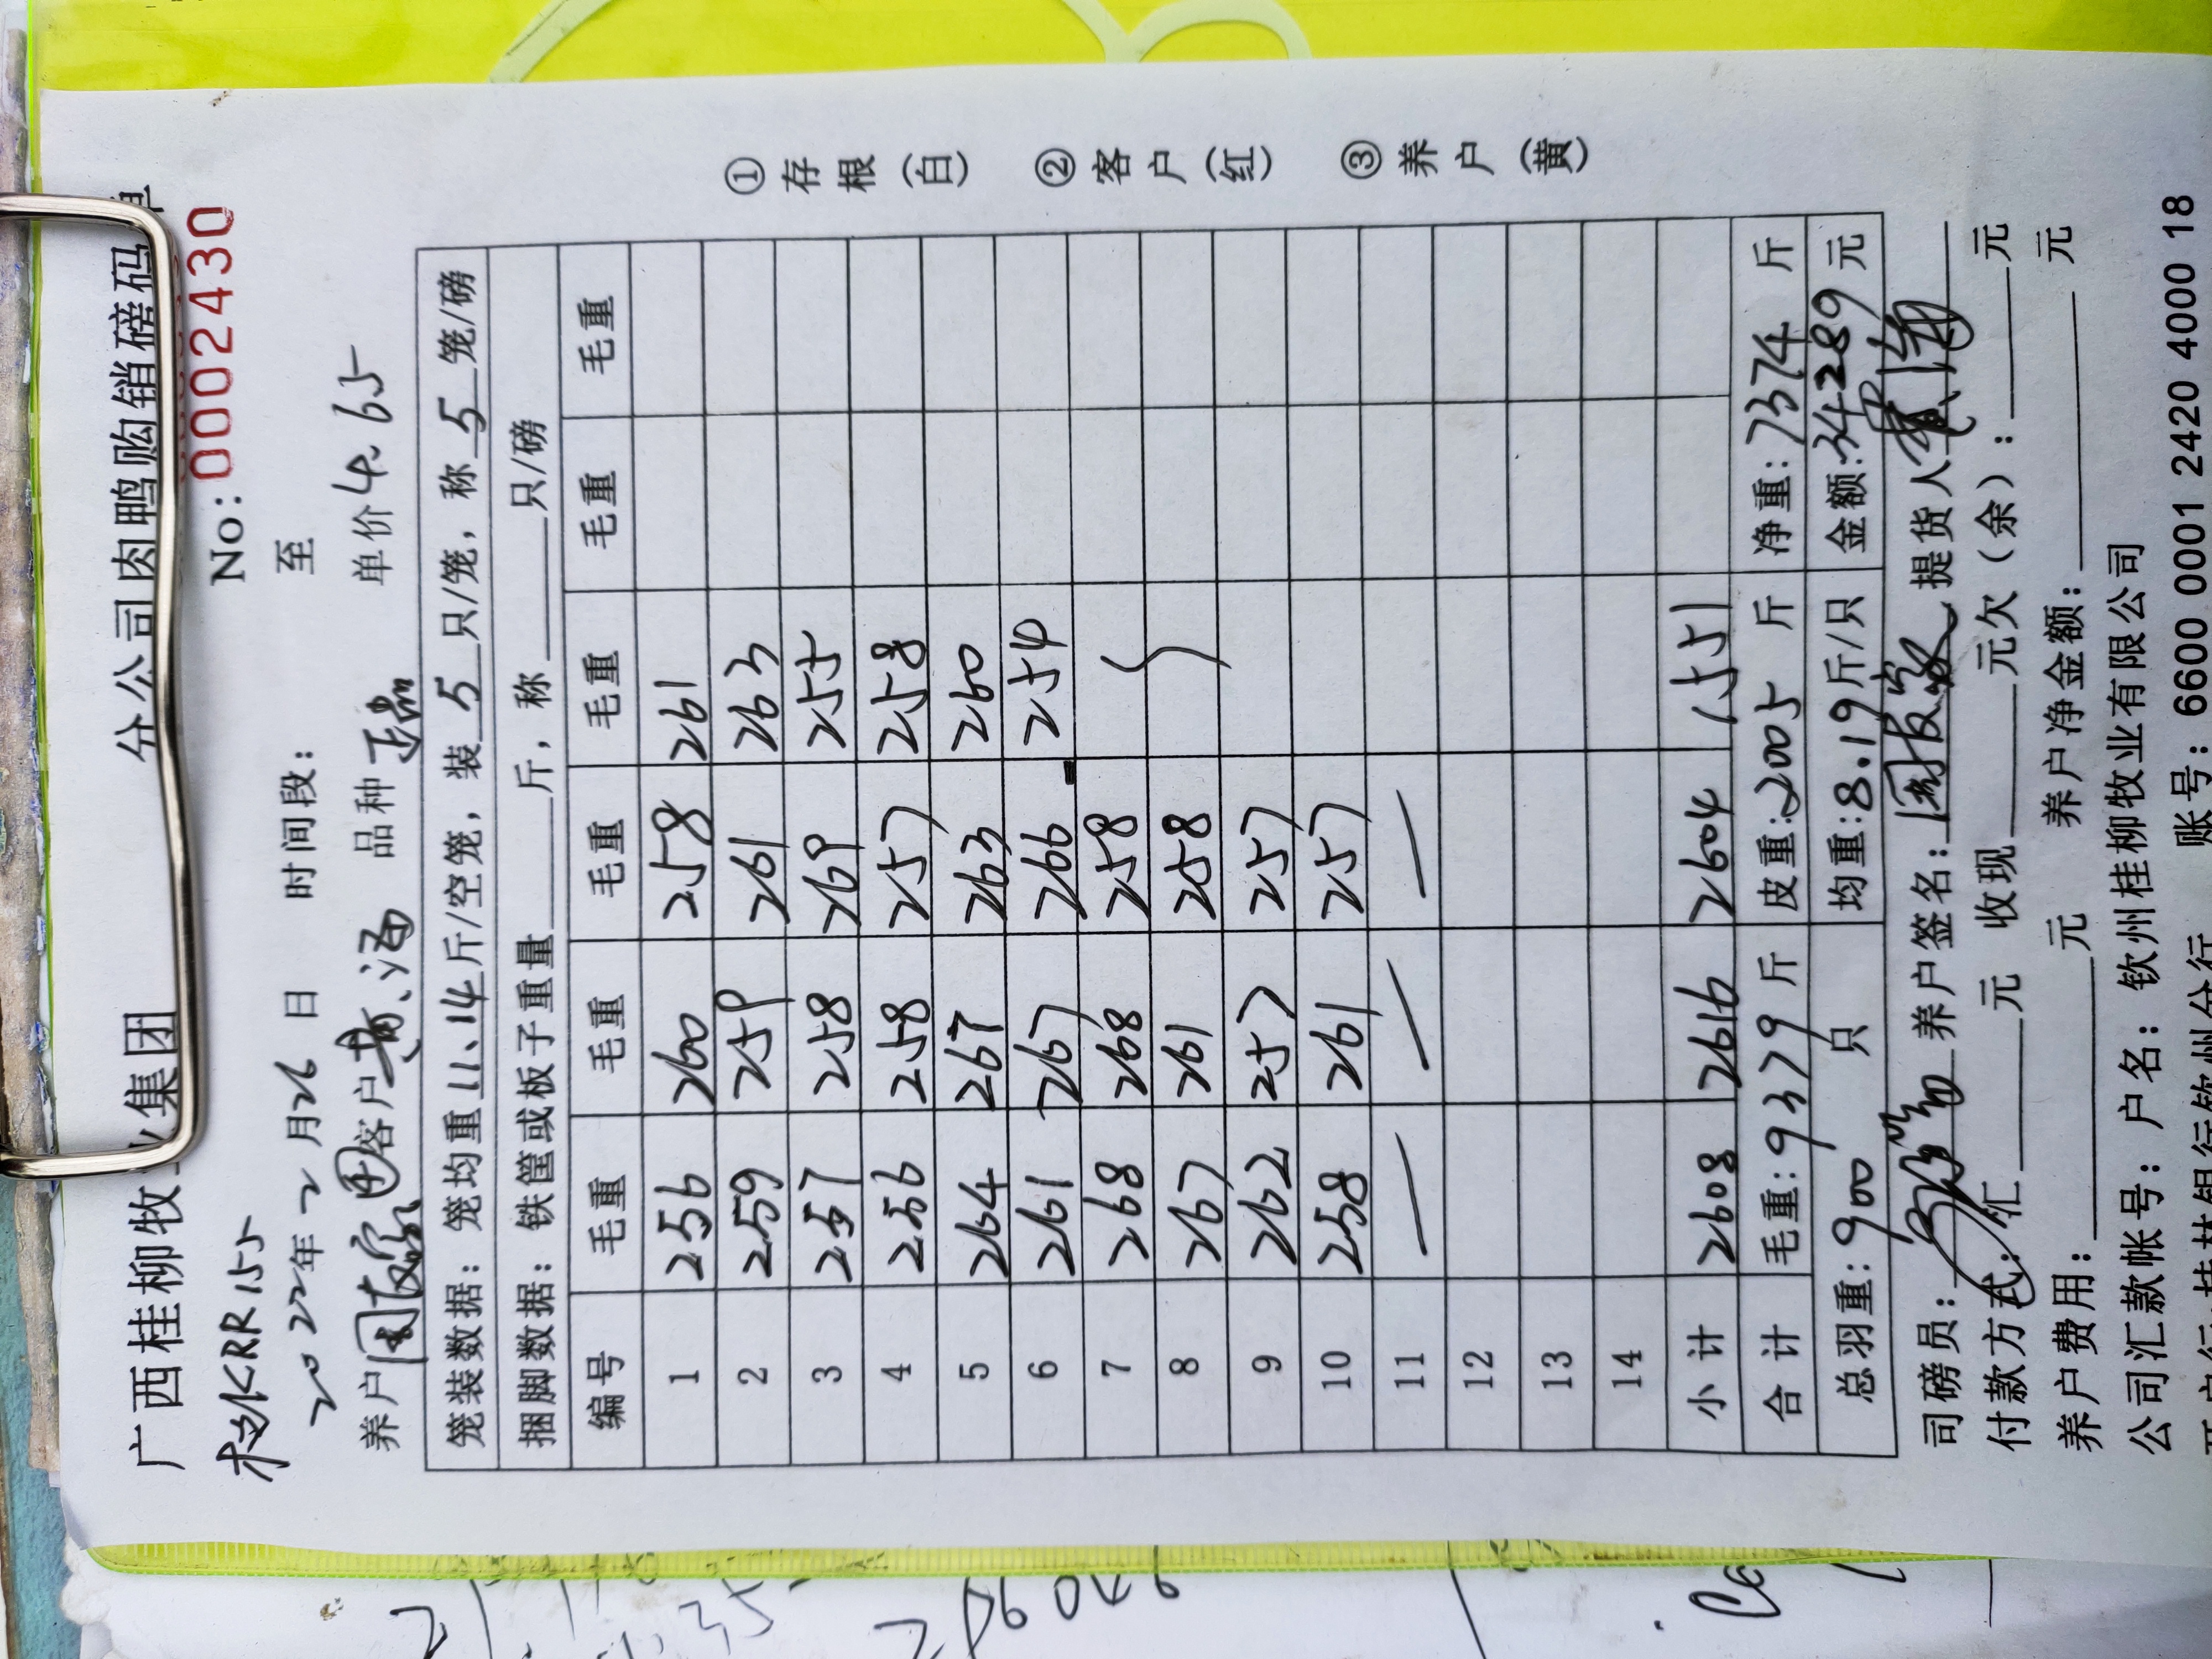 广西桂柳牧业集团 分公司肉鸭购销磅码单
No:0002430
KRR155
2022年2月26日 时间段: 至
养户 客户 品种 单价4.65
笼装数据:笼均重11.14斤/空笼,装5只/笼,称5笼/磅
捆脚数据:铁筐或板子重量 斤,称 只/磅
编号 毛重 毛重 毛重 毛重 毛重 毛重
1 256 260 258 261
2 259 259 261 263
3 257 258 269 255
4 256 258 257 258
5 264 267 263 260
6 261 267 266 254
7 268 268 258
8 267 261 258
9 262 257 257
10 258 261 257
11 — — —
12
13
14
小计 2608 2616 2604 1551
合计 毛重:9379斤 皮重:2005斤 净重:7374斤
总羽重:900只 均重:8.19斤/只 金额:34289元
司磅员: 养户签名: 提货人
付款方式:汇 元 收现 元欠(余): 元
养户费用: 元 养户净金额: 元
公司汇款帐号:户名:钦州桂柳牧业有限公司
账号:6600 0001 2420 4000 18
①存根(白) ②客户(红) ③养户(黄)